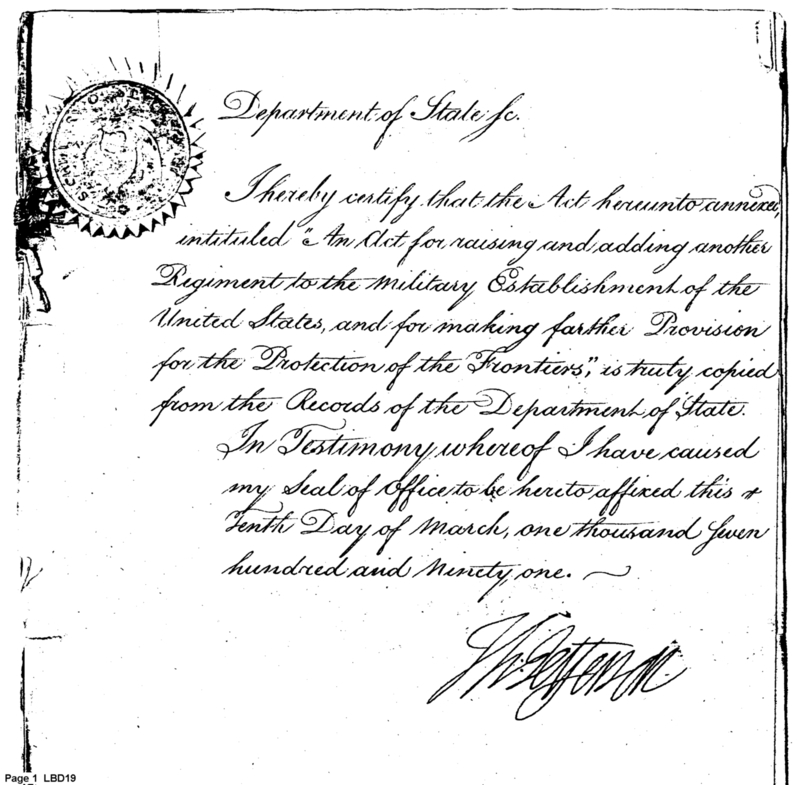 Department of State Sc.
I hereby certify that the Act hereunto annexed,
intituled "An Act for raising and adding another
Regiment to the Military Establishment of the
United States, and for making farther Provision
for the Protection of the Frontiers," is truly copied
from the Records of the Department of State.
In Testimony whereof I have caused
my Seal of Office to be hereto affixed this
Tenth Day of March, one thousand Seven
hundred and Ninety one.
Th: Jefferson
Page 1 LBD19